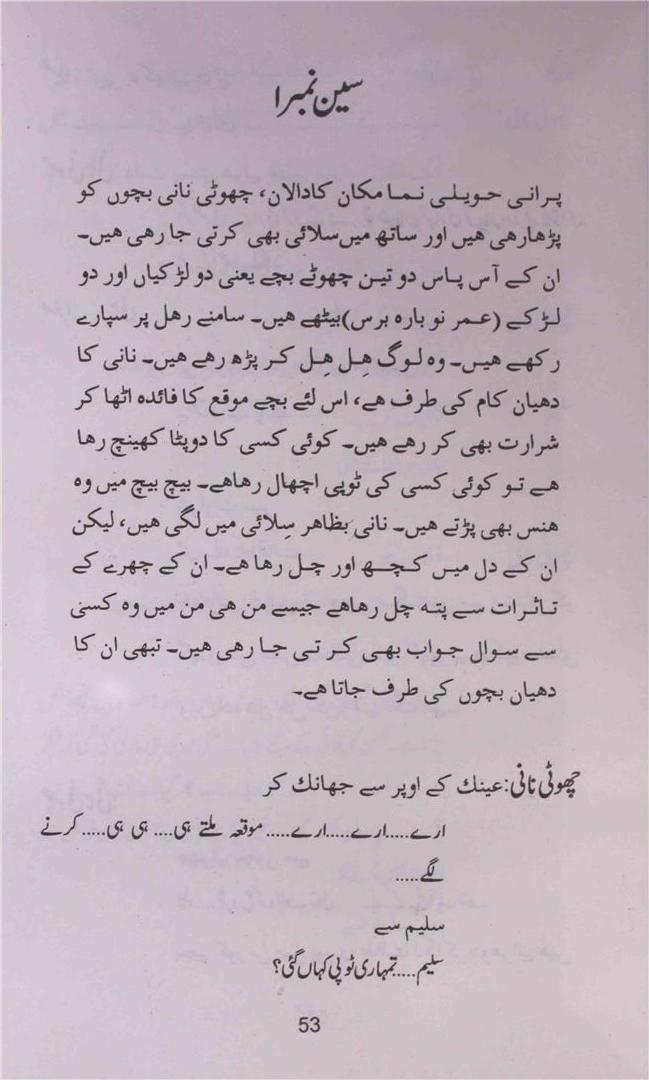 سین نمبر ۱
پرانی حویلی نما مکان کا دالان، چھوٹی نانی بچوں کو
پڑھارہی ہیں اور ساتھ میں سلائی بھی کرتی جا رہی ہیں۔
ان کے آس پاس دو تین چھوٹے بچے یعنی دو لڑکیاں اور دو
لڑکے (عمر نو بارہ برس) بیٹھے ہیں۔ سامنے رہل پر سپارے
رکھے ہیں۔ وہ لوگ ہِل ہِل کر پڑھ رہے ہیں۔ نانی کا
دھیان کام کی طرف ہے، اس لئے بچے موقع کا فائدہ اٹھا کر
شرارت بھی کر رہے ہیں۔ کوئی کسی کا دوپٹا کھینچ رہا
ہے تو کوئی کسی کی ٹوپی اچھال رہاہے۔ بیچ بیچ میں وہ
ہنس بھی پڑتے ہیں۔ نانی بظاہر سِلائی میں لگی ہیں، لیکن
ان کے دل میں کچھ اور چل رہا ہے۔ ان کے چہرے کے
تاثرات سے پتہ چل رہاہے جیسے من ہی من میں وہ کسی
سے سوال جواب بھی کرتی جا رہی ہیں۔ تبھی ان کا
دھیان بچوں کی طرف جاتا ہے۔
چھوٹی نانی: عینک کے اوپر سے جھانک کر
ارے.....ارے.....ارے..... موقعہ ملتے ہی.... ہی ہی..... کرنے
لگے.....
سلیم سے
سلیم.....تمہاری ٹوپی کہاں گئی؟
53